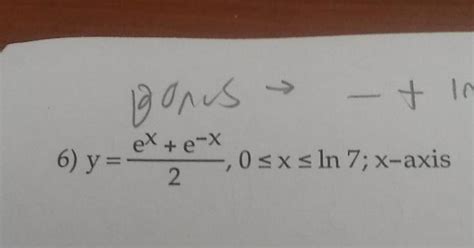 Bonus → − + ln
6) y = (eˣ + e⁻ˣ)/2, 0 ≤ x ≤ ln 7; x-axis